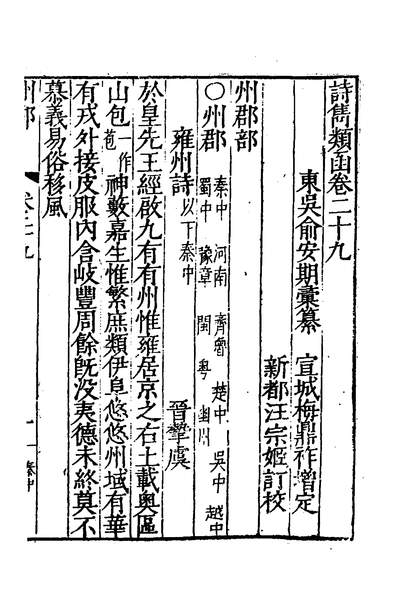 詩雋類函卷二十九
東吳俞安期彙纂　宣城梅鼎祚增定
新都汪宗姬訂校
州郡部
〇州郡　秦中　河南　齊魯　楚中　吳中　越中
蜀中　豫章　閩　粵　幽州
雍州詩　以下秦中　晉摯虞
於皇先王經啟九有有州惟雍居京之右土載奧區
山包一作苞神藪嘉生惟繁庶類伊阜悠悠州域有華
有戎外接皮服內含岐豐周餘既沒夷德未終莫不
慕義易俗移風
卷二十九
一
秦中